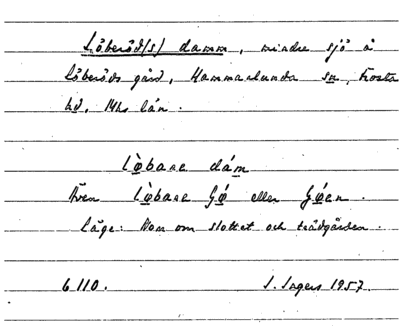 Löberöd(s) damm, mindre sjö å
Löberöds gård, Hammarlunda sn, Frosta
hd, Mhs län.
Lø̀bare dám
Även Lø̀bare Sǿ eller Sǿen.
Läge: Norr om slottet och trädgården.
6110.
S. Ingers 1957.